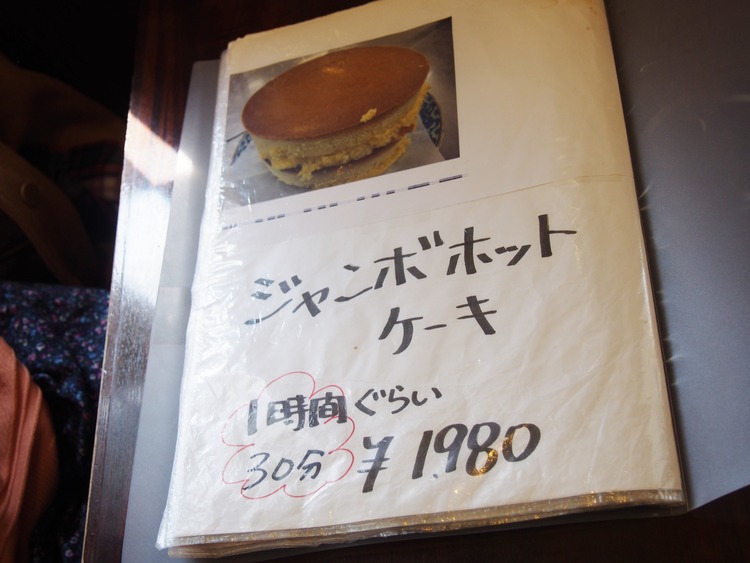 ジャンボホット
ケーキ
1時間ぐらい
30分 ¥1,980